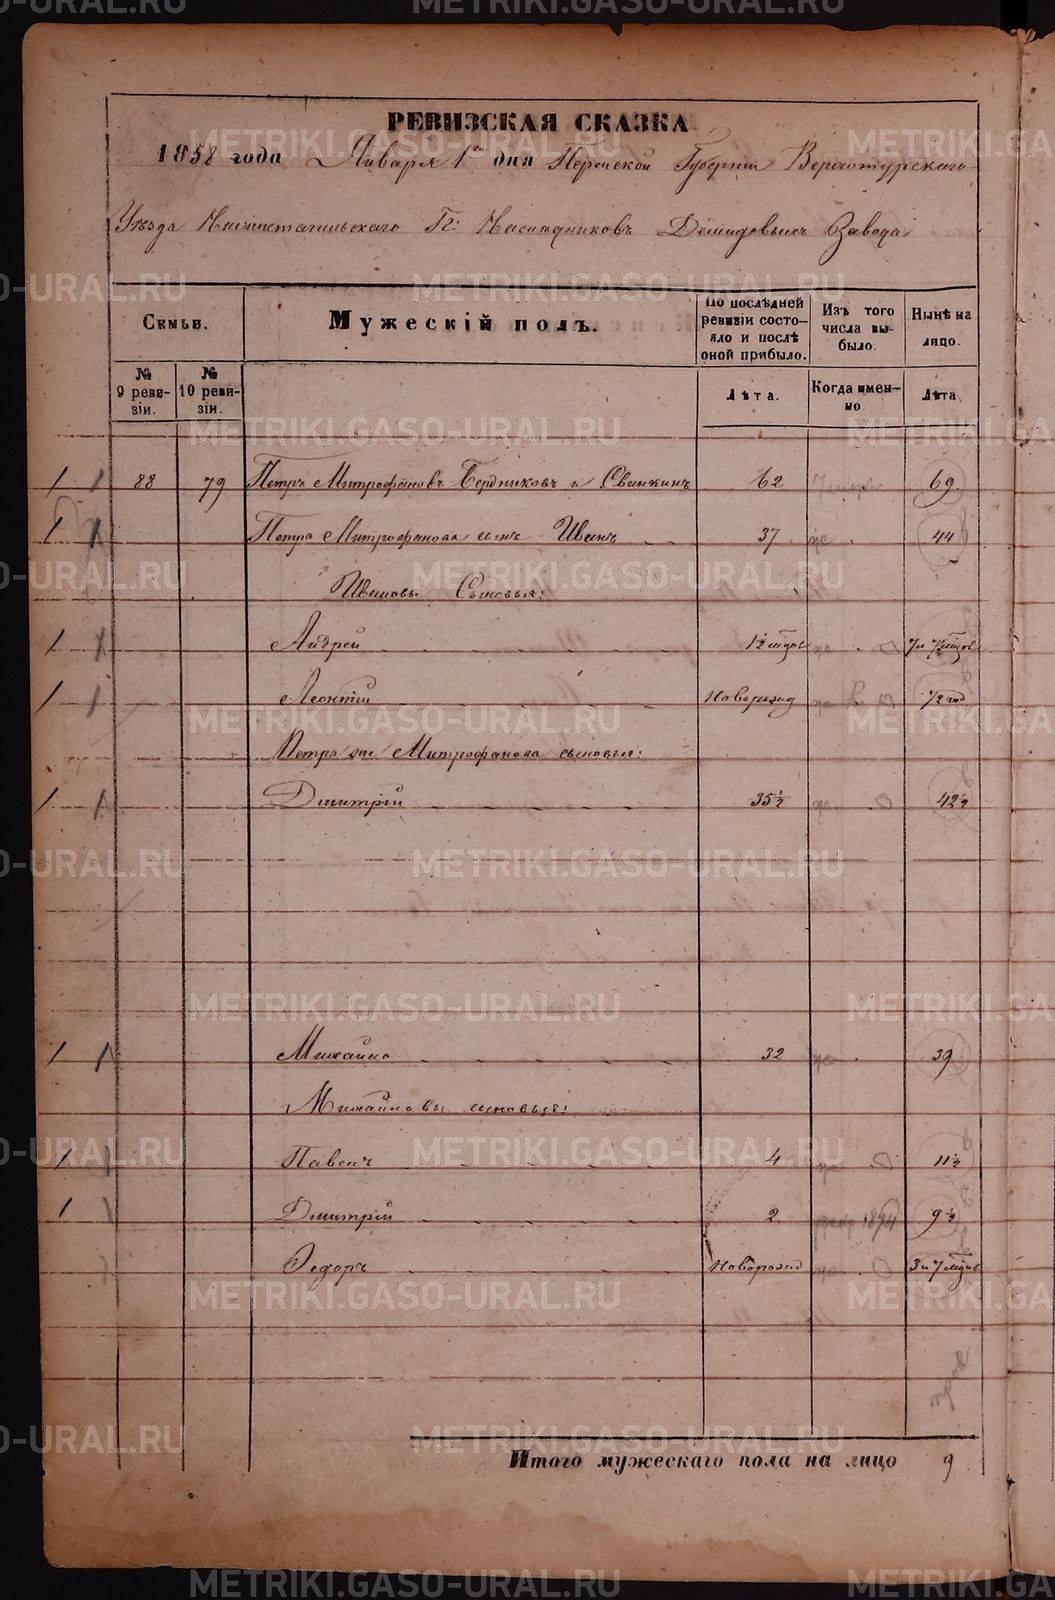 РЕВИЗСКАЯ СКАЗКА
1858 года Января 1го дня Пермской Губернии Верхотурскаго
Уѣзда Нижнетагильскаго Гг: Наслѣдниковъ Демидовыхъ Завода
Семьи.
Мужескій полъ.
По послѣдней ревизіи состояло и послѣ оной прибыло.
Изъ того числа выбыло.
Нынѣ на лицо.
№ 9 ревизіи.
№ 10 ревизіи.
Лѣта.
Когда именно
Лѣта
1 1 88 79 Петръ Митрофановъ Бердниковъ и Свинкинъ 62 69
1 1 Петра Митрофанова сынъ Иванъ 37 44
Ивановы Сыновья:
1 1 Андрей 1½ мѣць 7 и 1½ мѣць
1 1 Леонтій новорожд ½ год
Петра же Митрофанова сыновья:
1 1 Дмитрій 35½ 42½
1 1 Михайло 32 39
Михайловы сыновья:
1 1 Павелъ 4 11½
1 1 Дмитрій 2 9½
Федоръ новорожд 3 и 7 мѣць
Итого мужескаго пола на лицо 9
METRIKI.GASO-URAL.RU